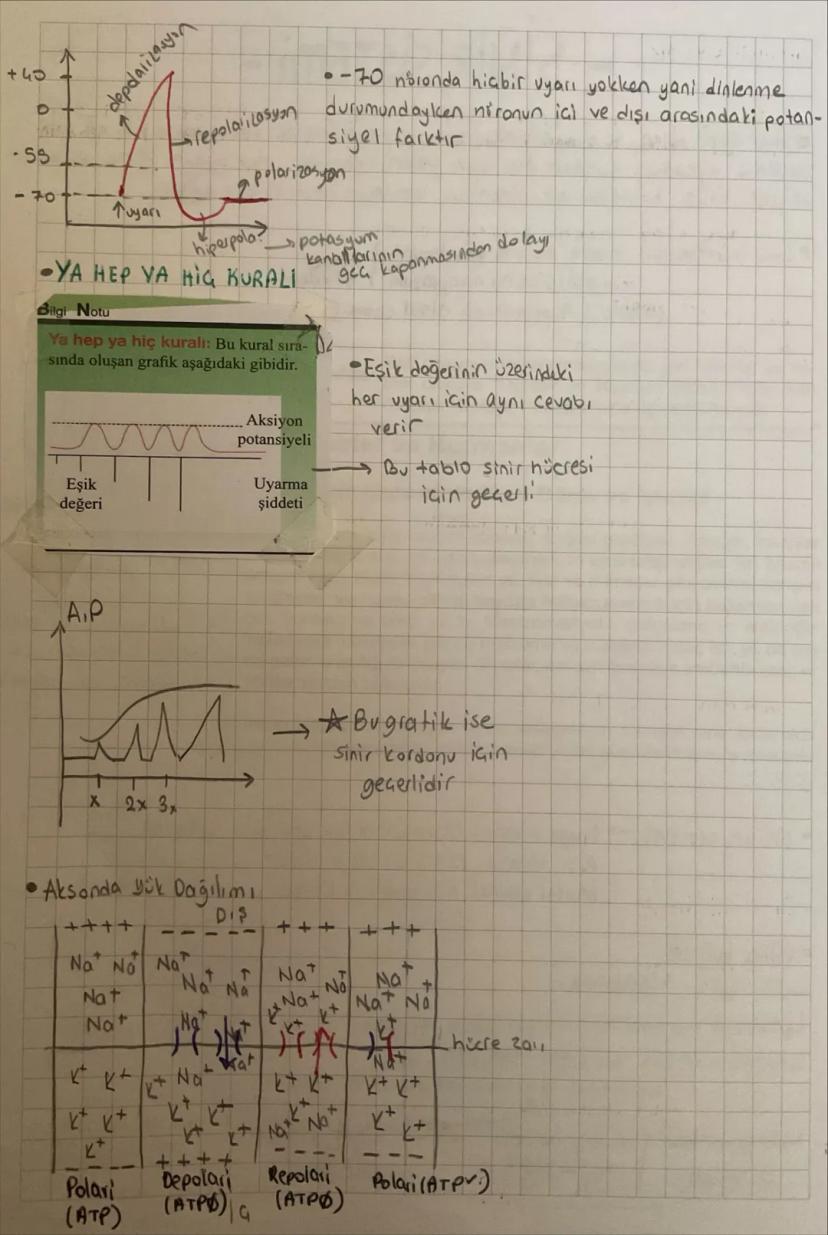 +40
0
-55
-70
depolarizasyon
repolarizasyon
polarizasyon
↑uyarı
hiperpola.
→ potasyum
kanallarının
geç kapanmasından dolayı
• -70 nöronda hiçbir uyarı yokken yani dinlenme
durumundayken nöronun içi ve dışı arasındaki potan-
siyel farktır
• YA HEP YA HİÇ KURALI
Bilgi Notu
Ya hep ya hiç kuralı: Bu kural sıra-
sında oluşan grafik aşağıdaki gibidir.
Aksiyon
potansiyeli
Eşik
değeri
Uyarma
şiddeti
• Eşik değerinin üzerindeki
her uyarı için aynı cevabı
verir
→ Bu tablo sinir hücresi
için geçerli
A.P
x 2x 3x
→ ☆ Bu grafik ise
sinir kordonu için
geçerlidir
• Aksonda Yük Dağılımı
DIŞ
++++ ----- +++ +++
Na+ Na+ Na+ Na+
Na+ Na+ Na+ Na+
Na+ Na+ Na+ Na+
K+ K+ K+
Na+ Na+ Na+ Na+
hücre zarı
K+ K+ K+ Na+ K+ K+ K+ K+
K+ K+ K+ K+ K+ K+ K+
K+ K+ K+ Na+ Na+
--- ++++ ---- ---
Polari Depolari Repolari Polari (ATP✓)
(ATP) (ATPØ) (ATPØ)